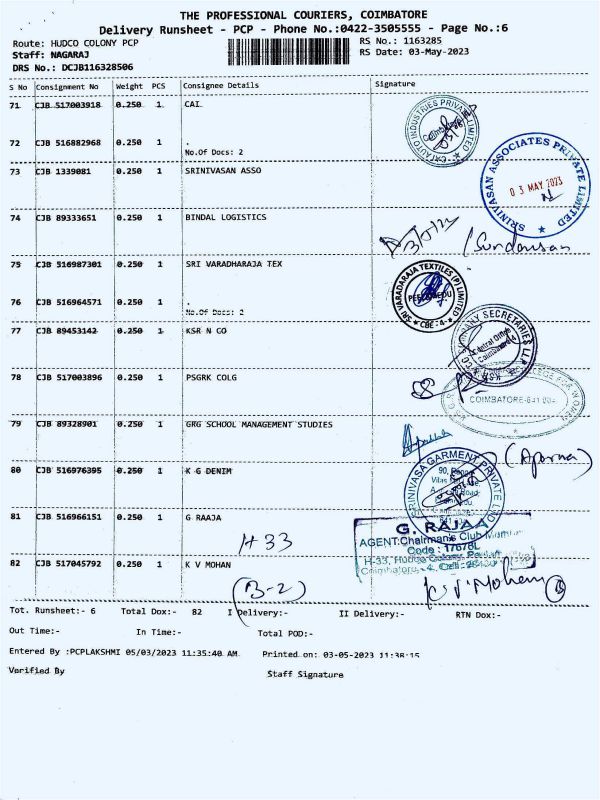 THE PROFESSIONAL COURIERS, COIMBATORE
Delivery Runsheet - PCP - Phone No.:0422-3505555 - Page No.:6
Route: HUDCO COLONY PCP RS No.: 1163285
Staff: NAGARAJ RS Date: 03-May-2023
DRS No.: DCJB116328506
S No Consignment No Weight PCS Consignee Details Signature
71 CJB 517003918 0.250 1 CAI
CAI AUTO INDUSTRIES PRIVATE LIMITED
72 CJB 516882968 0.250 1 .
No.Of Docs: 2
73 CJB 1339081 0.250 1 SRINIVASAN ASSO
SRINIVASAN ASSOCIATES PRIVATE LIMITED
03 MAY 2023
74 CJB 89333651 0.250 1 BINDAL LOGISTICS
75 CJB 516987301 0.250 1 SRI VARADHARAJA TEX
SRI VARADARAJA TEXTILES (P) LIMITED
PEELAMEDU
CBE-4
76 CJB 516964571 0.250 1 .
No.Of Docs: 2
77 CJB 89453142 0.250 1 KSR N CO
SECRETARIES LLP
78 CJB 517003896 0.250 1 PSGRK COLG
COLLEGE FOR WOMEN
COIMBATORE-641 004
79 CJB 89328901 0.250 1 GRG SCHOOL MANAGEMENT STUDIES
(Aparna)
80 CJB 516976395 0.250 1 K G DENIM
SRINIVASA GARMENT PRIVATE
90,
81 CJB 516966151 0.250 1 G RAAJA
H-33
G. RAJAA
AGENT:Chairman's Club
Code : 17678L
H-33, Hudco Colony,
Coimbatore - 4, Cell:
82 CJB 517045792 0.250 1 K V MOHAN
(B-2)
K V Mohan
Tot. Runsheet:- 6 Total Dox:- 82 I Delivery:- II Delivery:- RTN Dox:-
Out Time:- In Time:- Total POD:-
Entered By :PCPLAKSHMI 05/03/2023 11:35:40 AM Printed on: 03-05-2023 11:38:15
Verified By Staff Signature